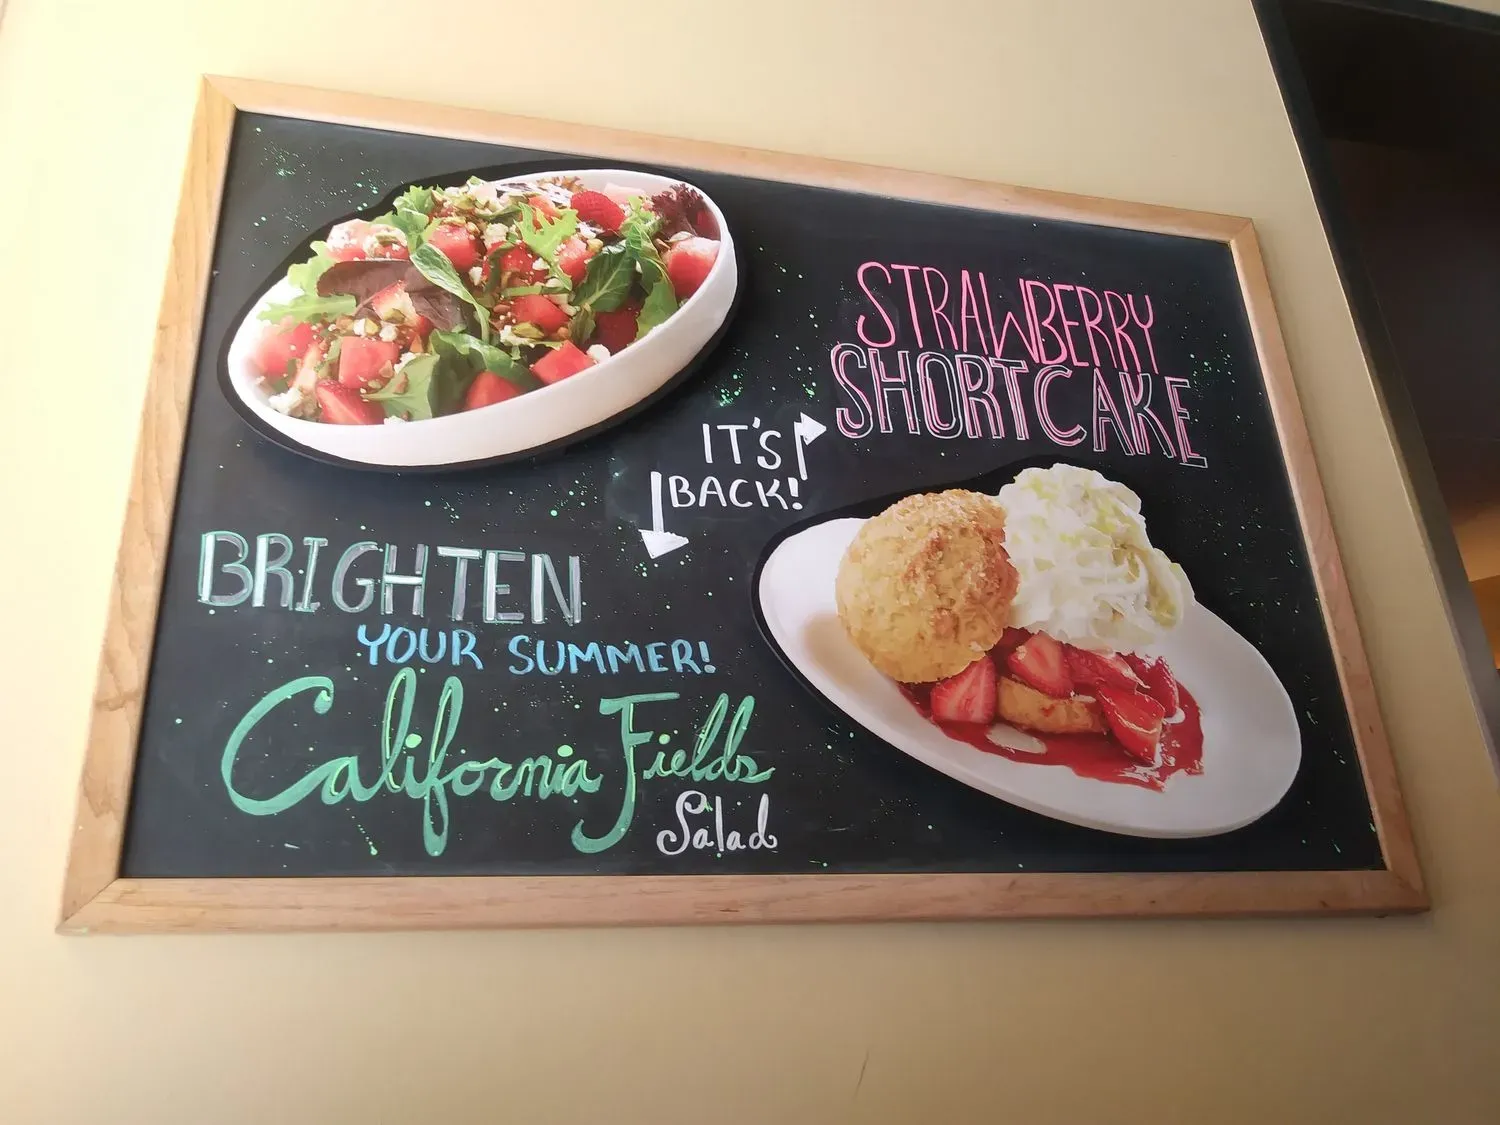 STRAWBERRY
SHORTCAKE
IT'S
BACK!
BRIGHTEN
YOUR SUMMER!
California Fields
Salad